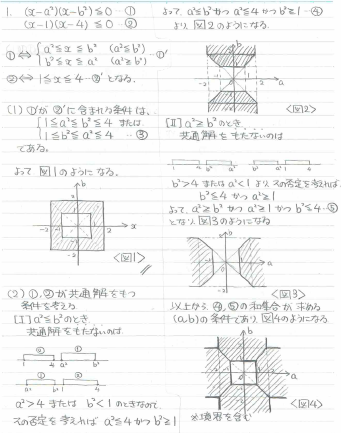 1. (x-a²)(x-b²)≦0 …①
(x-1)(x-4)≦0 …②
①⇔{a²≦x≦b² (a²≦b²)
b²≦x≦a² (a²≧b²) …①′
②⇔1≦x≦4…②′となる。
(1) ①′が②′に含まれる条件は、
{1≦a²≦4 または
1≦b²≦4 …③
である。
よって 図1のようになる。
b
x
2
-2
<図1>
(2) ①,②が共通解をもつ
条件を考える
[Ⅰ] a²≦b²のとき
共通解をもたないのは
② ①
1 4 a² b²
① ②
a² b² 1 4
a²>4 または b²<1のときなので、
その否定を考えれば a²≦4かつb²≧1
よって a²≦b²かつ a²≦4かつb²≧1…④
より、図2のようになる。
b
a
<図2>
[Ⅱ] a²≧b²のとき
共通解をもたないのは
1 4 b² a²
b² a² 1 4
b²>4またはa²<1より その否定を考えれば
b²≦4 かつ a²≧1
よって a²≧b²かつa²≧1かつb²≦4…⑤
となり図3のようになる
b
a
<図3>
以上から、④,⑤の和集合が求める
(a,b)の条件であり、図4のようになる
b
a
<図4>
※境界を含む